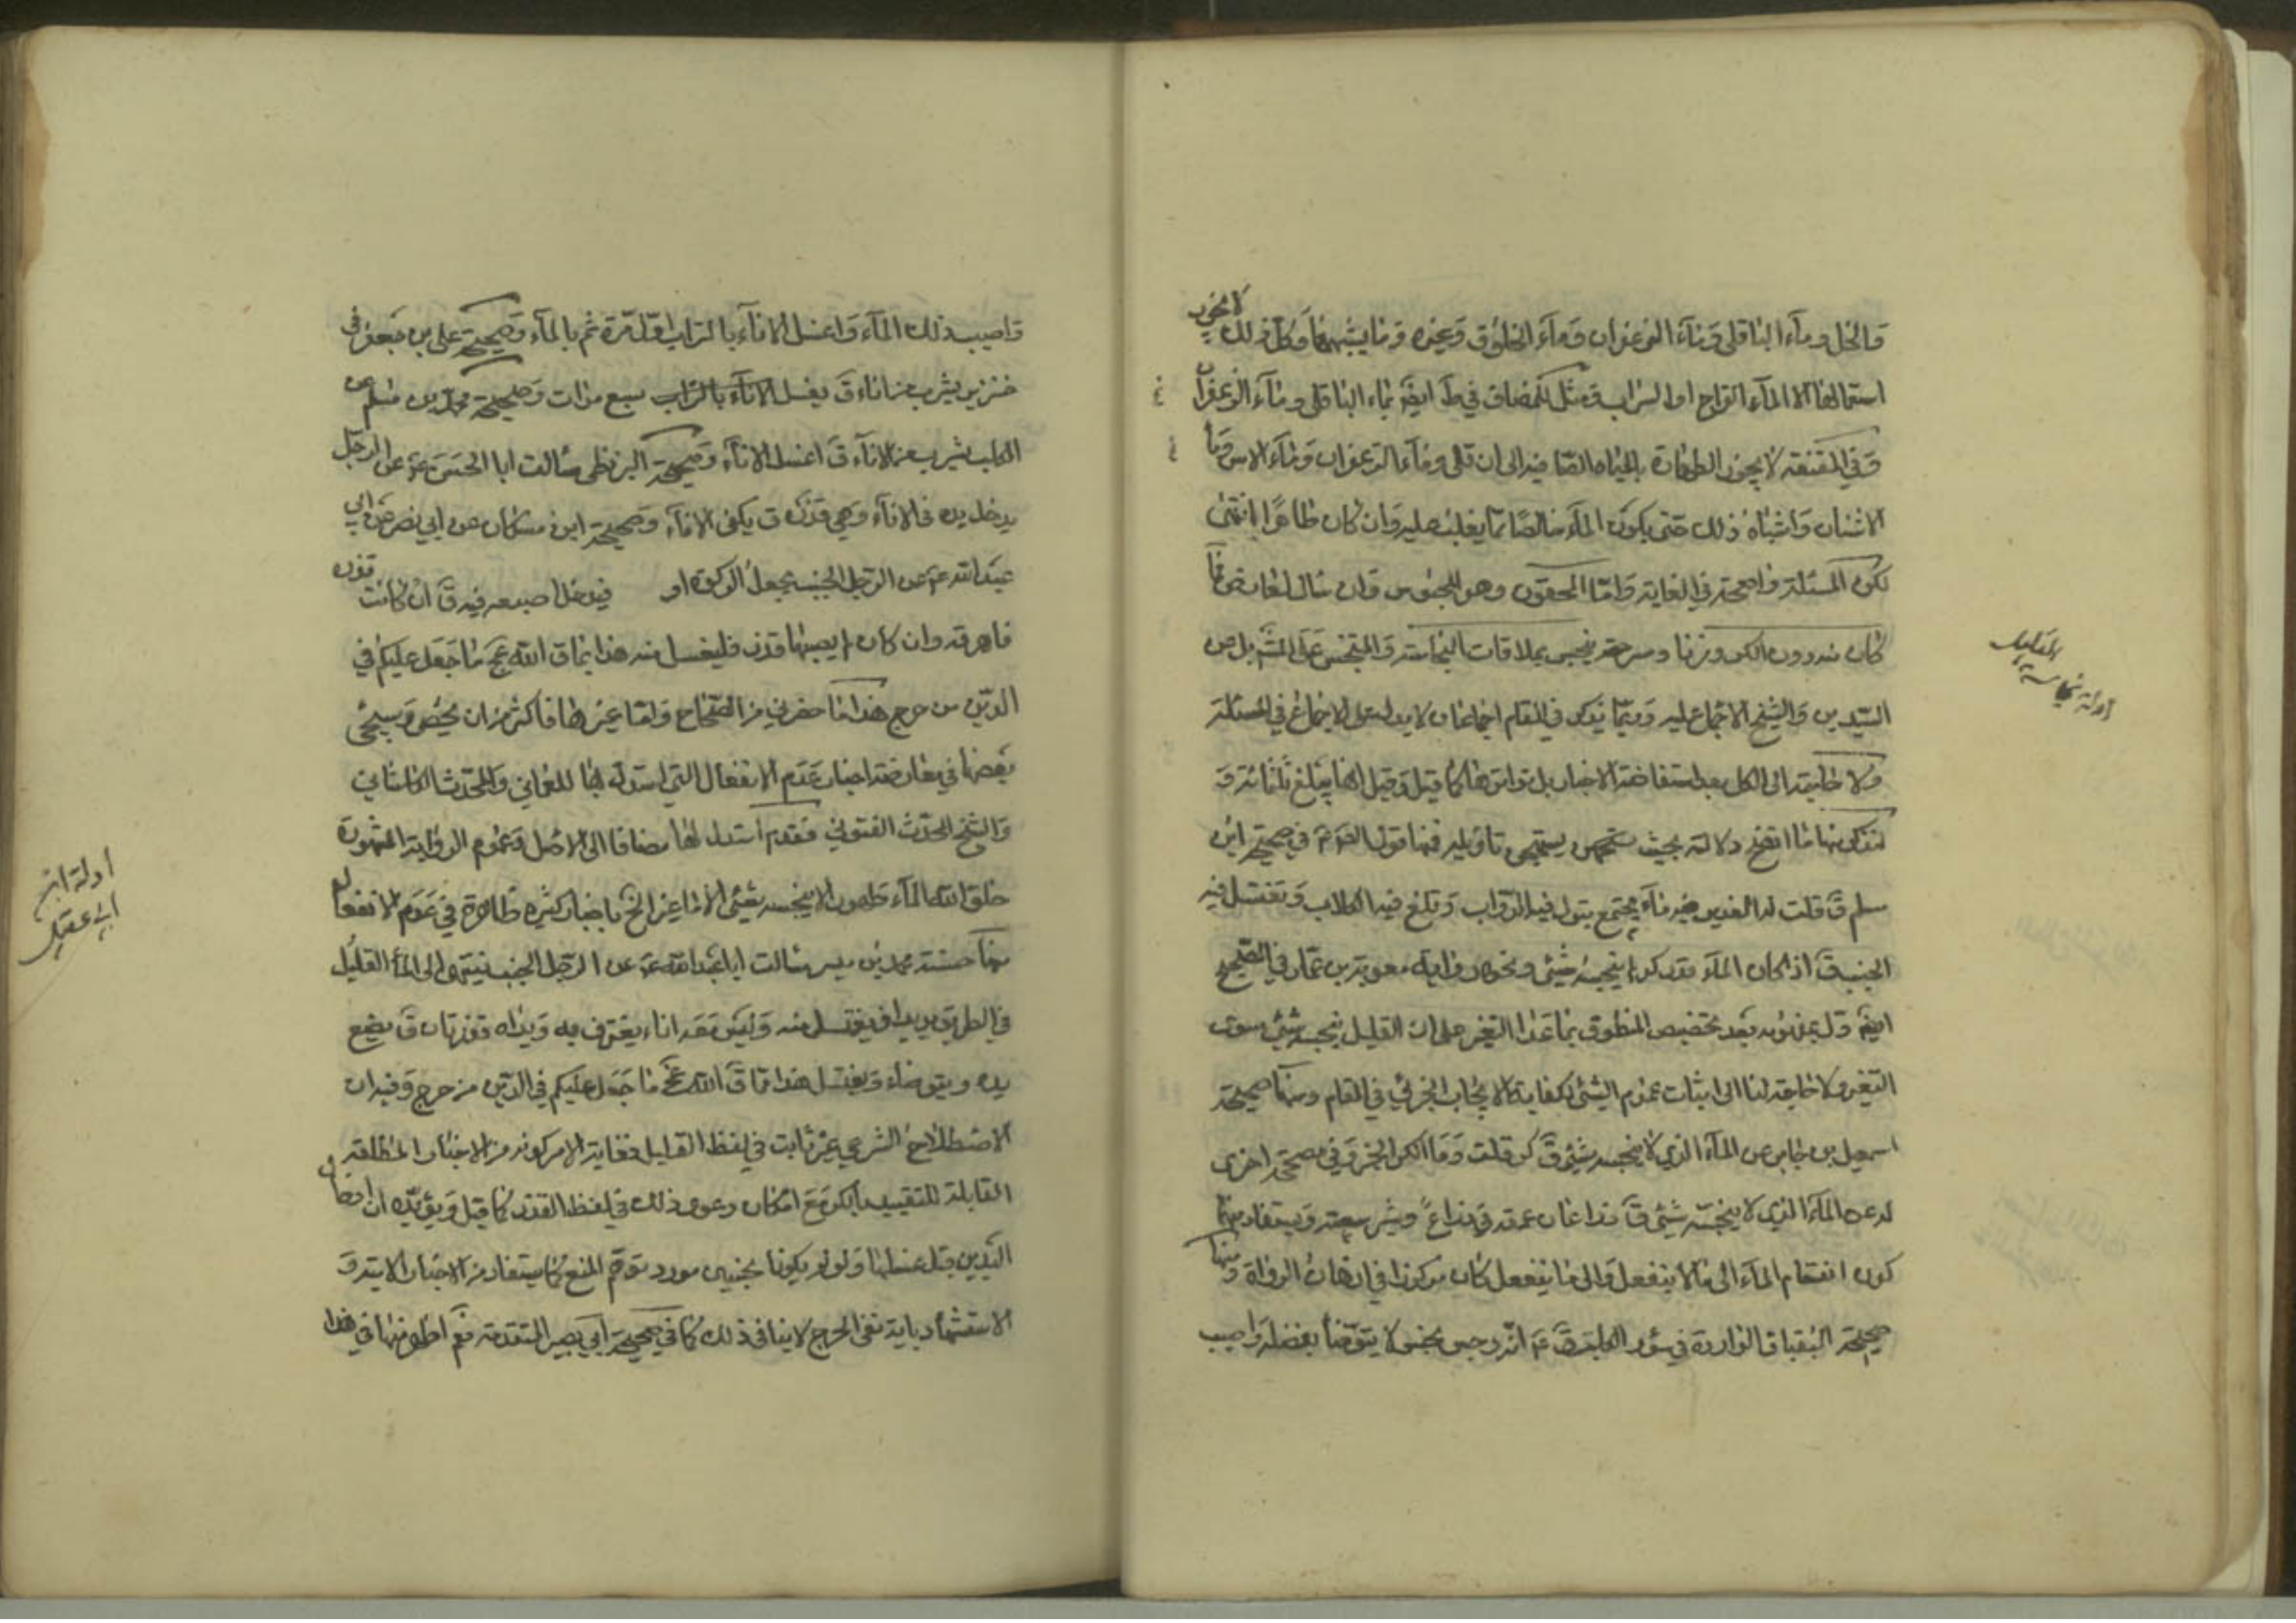 والخل وماء الباقلى وماء الزعفران وماء الخلوق وغيره وما يشبهها وكل ذلك لا يجوز
استعمالها الا الماء القراح او التراب ومثل للمضاف في ط ايضا بماء الباقلى وماء الزعفران
وفي المقنعة لا يجوز الطهارة بالمياه المضافة الى ان قال وماء الزعفران وماء الاس وماء
الاشنان واشباه ذلك حتى يكون الماء خالصا مما يغلب عليه وان كان طاهرا انتهى
لكن المسئلة واضحة في الغاية واما المحقون وهو المحبوس
كان بدون الكر وزنا ومسرحة ينجس بملاقات النجاسة والمتنجس على المش بل عن
السيدين والشيخ الاجماع عليه وربما يذكر في المقام
ولا حاجة الى الكل بعد استفاضة الاخبار بل تواترها كما قيل وقيل انها يبلغ ثلثمائة و
لنذكر منها ما اتضح دلالته بحيث يستهجن تاويله فمنها قول الص م في صحيحة ابن
مسلم ق قلت له الغدير فيه ماء مجتمع يبول فيه الدواب وتلغ فيه الكلاب وتغتسل فيه
الجنب ق اذا كان الماء قدر كر لم ينجسه شئ ونحوه رواية معوية بن عمار في الصحيح
ايضا دل بمفهومه بعد تخصيص المنطوق بما عدا التغير على ان القليل ينجسه شئ سوى
التغير ولا حاجة لنا الى اثبات عموم الشئ لكفاية الايجاب الجزئي في المقام ومنها صحيحة
اسمعيل بن جابر عن الماء الذي لا ينجسه شئ ق كر قلت وما الكر الخ وفي صحيحة اخرى
له عن الماء الذي لا ينجسه شئ ق ذراعان عمقه في ذراع وشبر سعته ويستفاد منها
كون انقسام الماء الى ما لا ينفعل والى ما ينفعل كان مركوزا في اذهان الرواة ومنها
صحيحة البقباق الواردة في سؤر الكلب ق انه رجس نجس لا يتوضأ بفضله واصبب
ادلة نجاسة
القليل
واصبب ذلك الماء واغسل الاناء بالتراب اول مرة ثم بالماء وصحيحة علي بن جعفر في
خنزير يشرب من اناء ق يغسل الاناء بالتراب سبع مرات وصحيحة محمد بن مسلم عن
الكلب يشرب من الاناء ق اغسل الاناء وصحيحة البزنطي سالت ابا الحسن ع عن الرجل
يدخل يده في الاناء وهي قذرة ق يكفى الاناء وصحيحة ابن مسكان عن ابي بصير عن ابي
عبد الله ع عن الرجل الجنب يجعل الركوة او فيدخل اصبعه فيه ق ان كانت قذرة
فاهرقه وان كان لم يصبها قذر فليغسل منه هذا مما ق الله عج ما جعل عليكم في
الدين من حرج هذا ما حضرني من الصحاح واما غيرها فاكثر من ان يحصى وسيجئ
بعضها في معارضة اخبار عدم الانفعال التي استدل بها العماني والمحدث الكاشاني
والشيخ المحدث الفتوني فقد استدل لها مضافا الى الاصل وعموم الرواية المشهورة
خلق الله الماء طهورا لا ينجسه شئ الا ما غير الخ باخبار كثيرة ظاهرة في عدم الانفعال
منها حسنة محمد بن ميسر سالت ابا عبد الله ع عن الرجل الجنب ينتهى الى الماء القليل
في الطريق يريد ان يغتسل منه وليس معه اناء يغترف به ويداه قذرتان ق يضع
يده ويتوضاء ويغتسل هذا مما ق الله عج ما جعل عليكم في الدين من حرج وفيه ان
الاصطلاح الشرعي غير ثابت في لفظ القليل فغاية الامر كونه من الاخبار المطلقة
القابلة للتقييد بالكر مع امكان دعوى ذلك في لفظ القذر كما قيل ويؤيده ان ادخال
اليدين قبل غسلهما ولو لم يكونا نجسين مورد توهم المنع كما يستفاد من الاخبار الاتية و
الاستشهاد باية نفى الحرج لا ينافي ذلك كما في صحيحة ابي بصير المتقدمة نعم اظهر منها في هذا
ادلة ابن
ابي عقيل